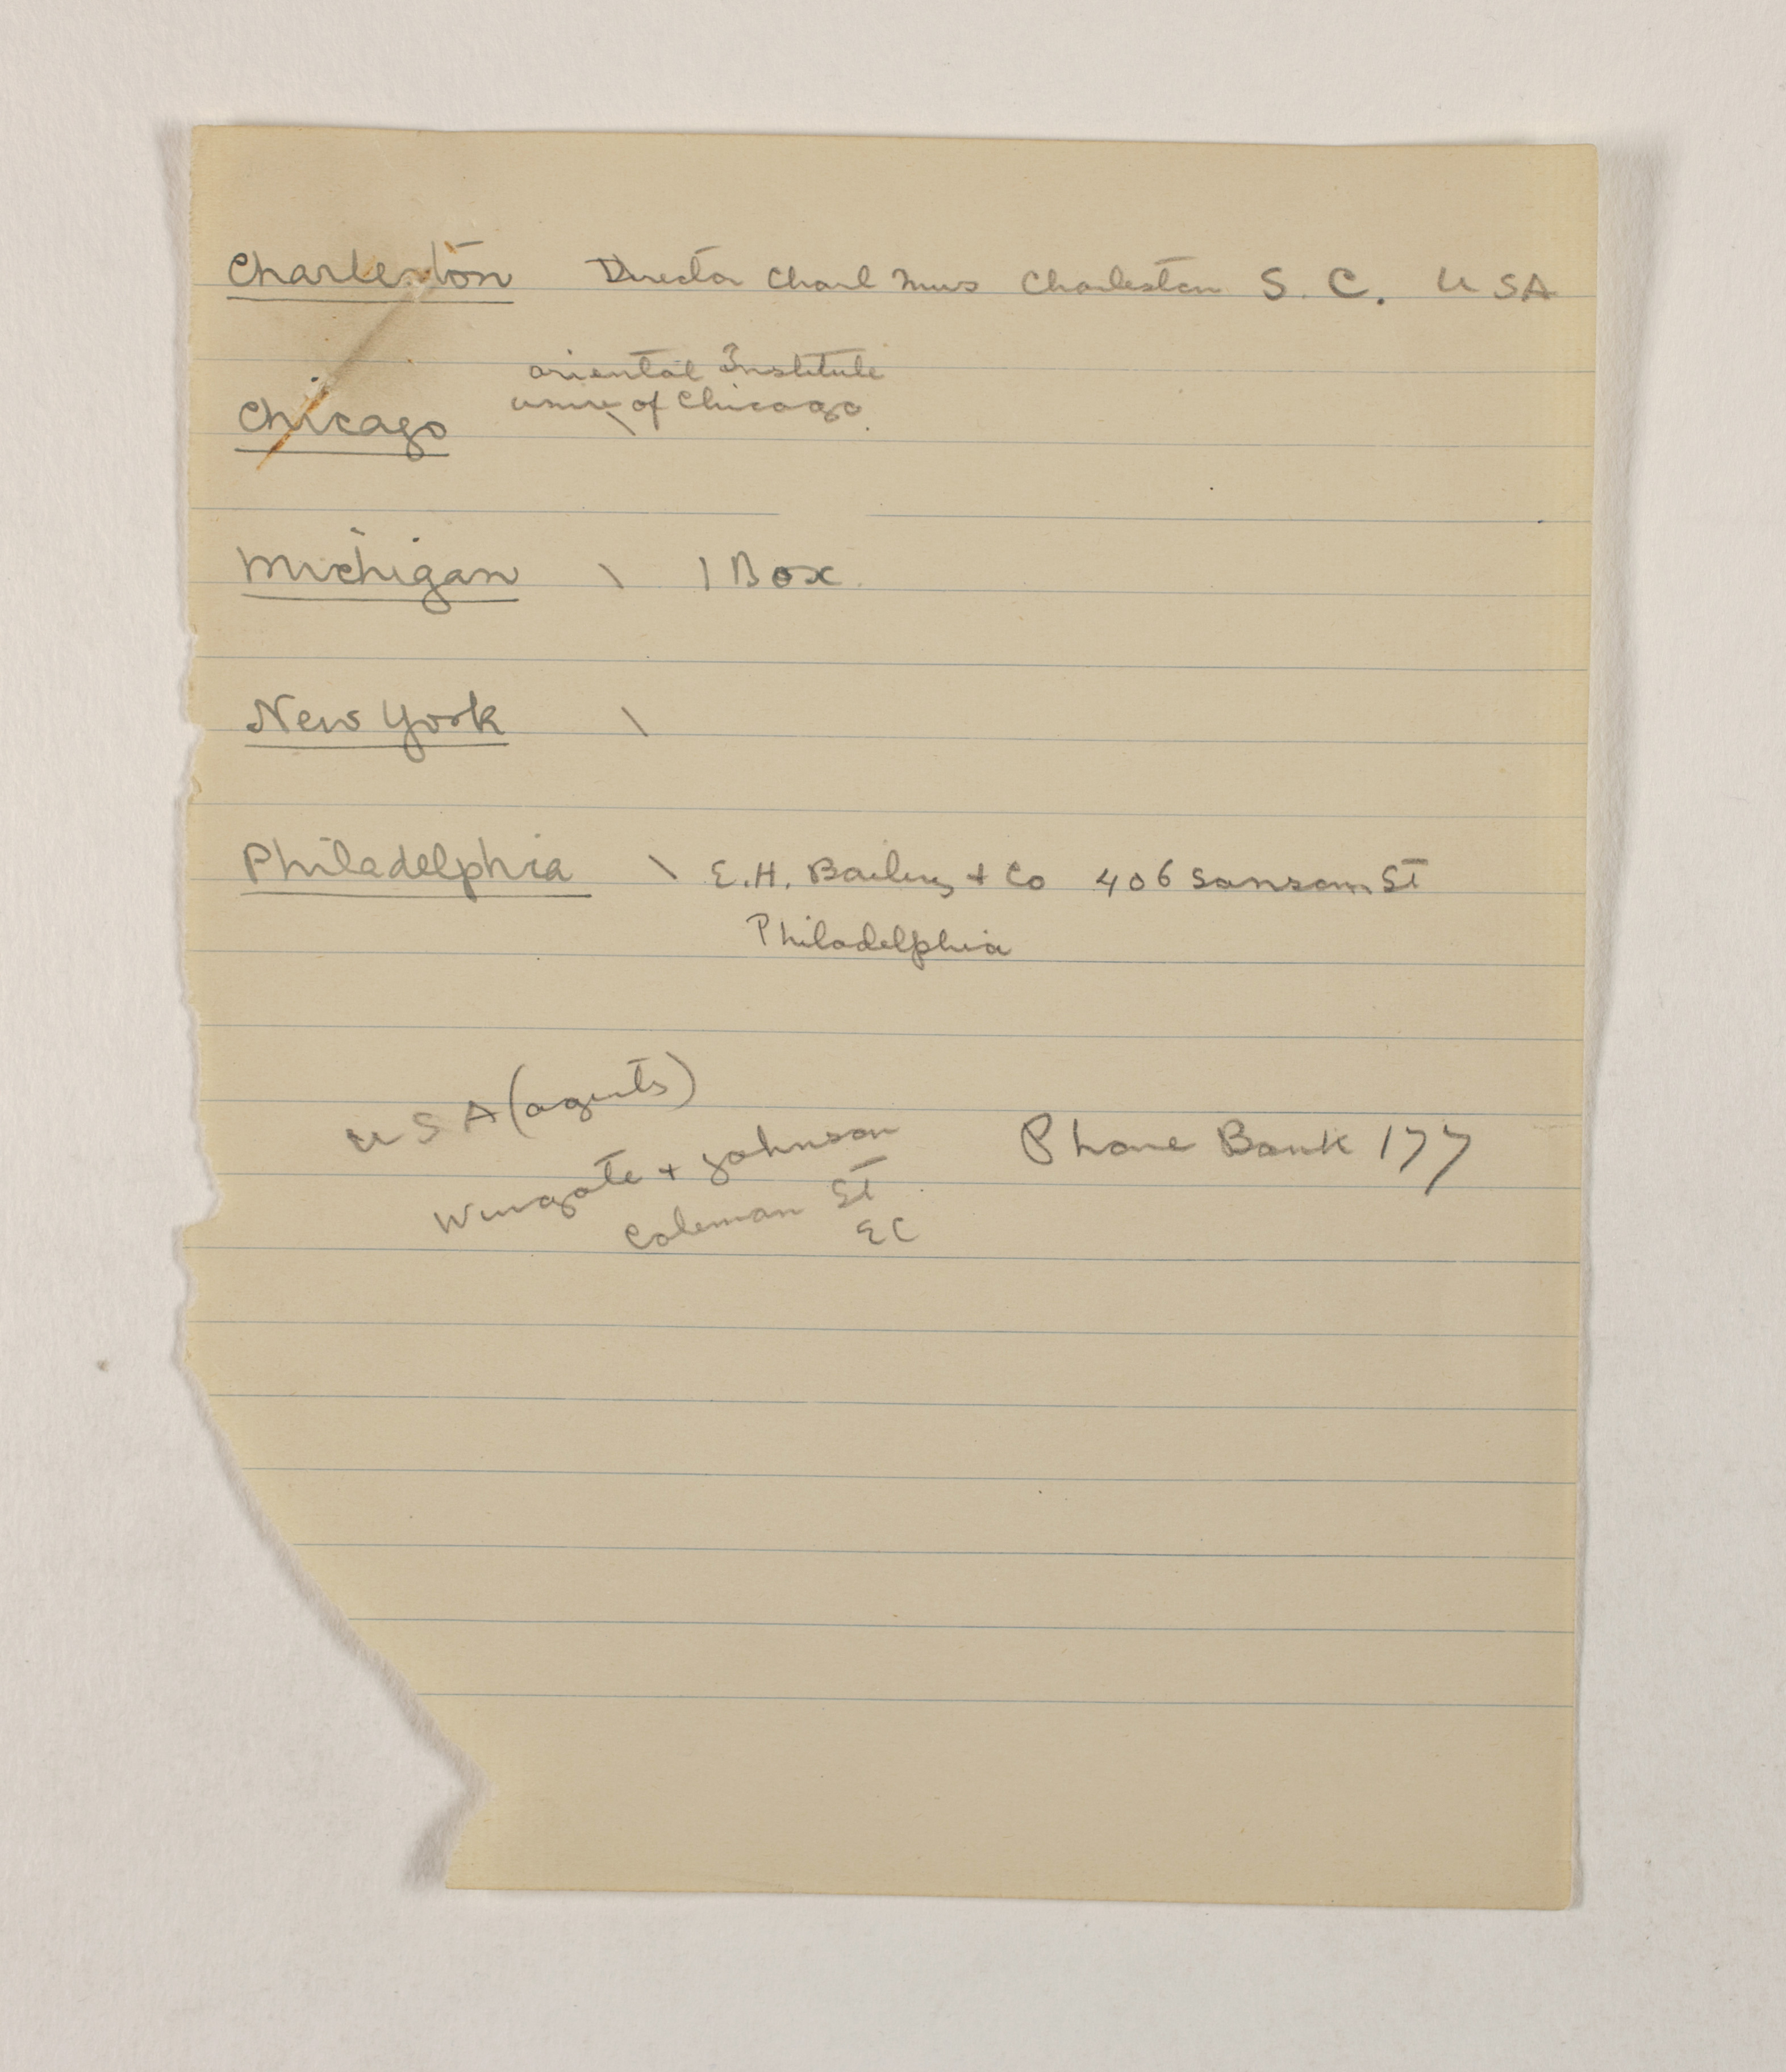 Charleston Director Charl Mus Charleston S. C. USA
oriental Institute
Chicago univ of Chicago.
Michigan \ 1 Box.
New York \
Philadelphia \ E.H. Bailey + Co 406 Sansom St
Philadelphia
USA (agents)
Wingate + Johnson Phone Bank 177
Coleman St
EC